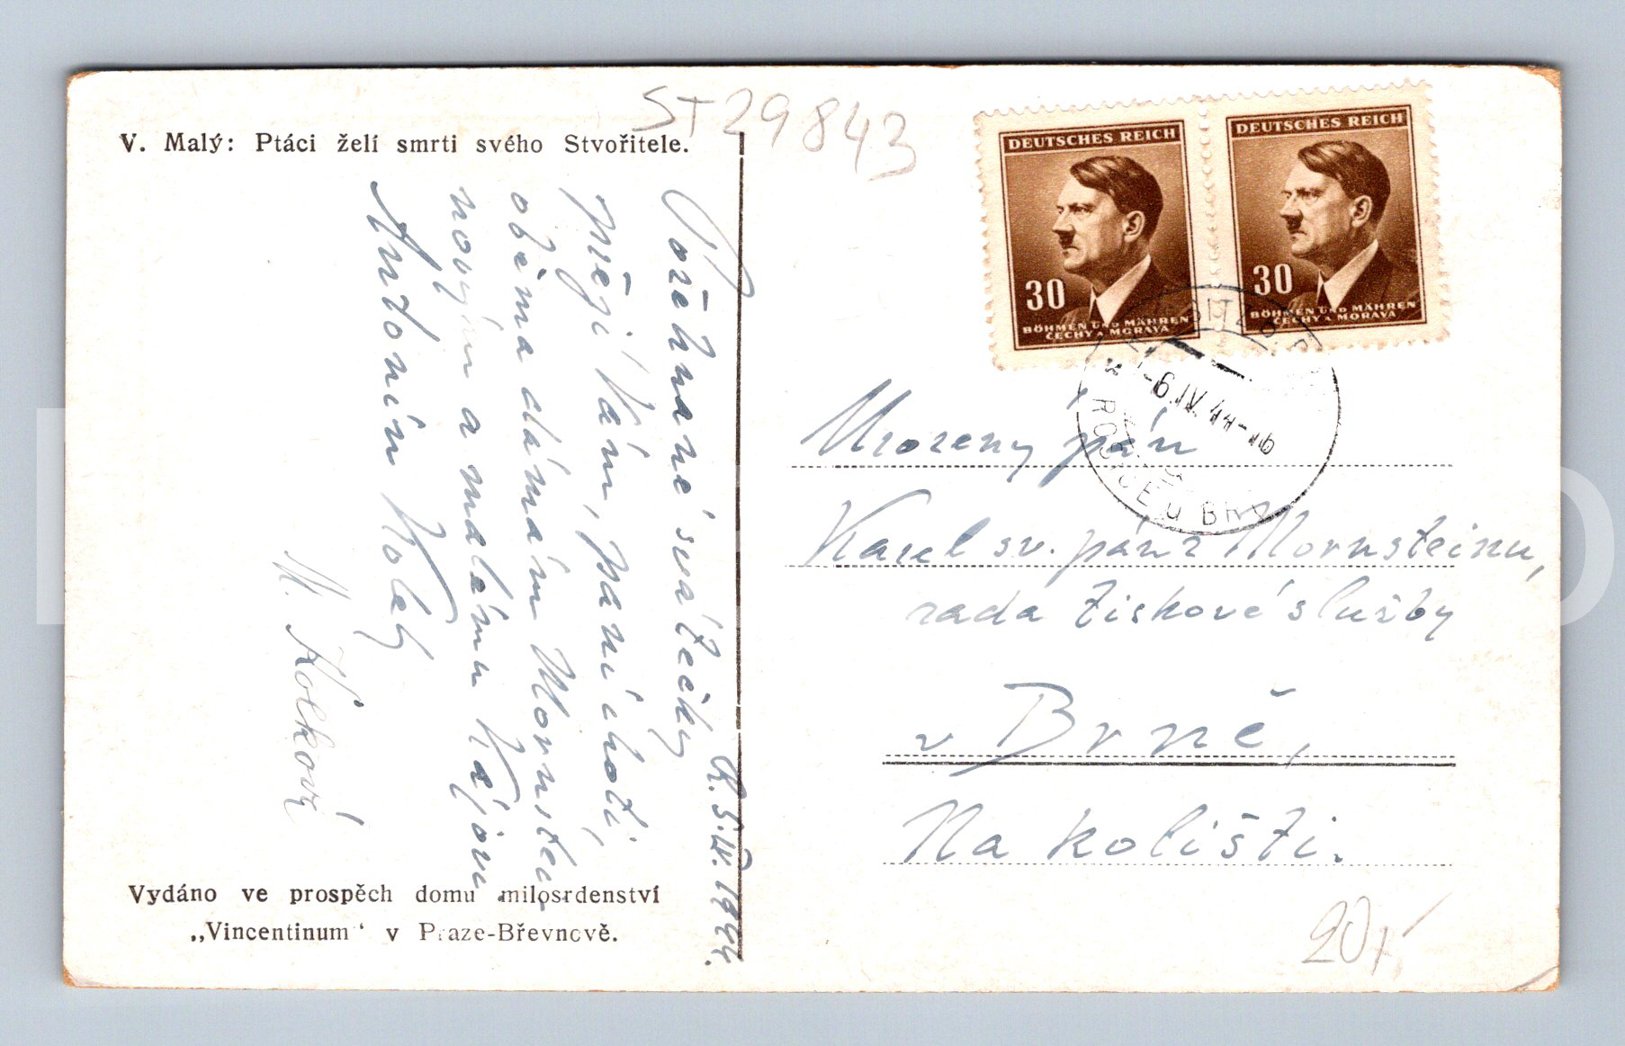 V. Malý: Ptáci želí smrti svého Stvořitele.
ST29843
Požehnané svátečky
přeji Vám, paní choti,
oběma dámám Mornstein
novým a malému Kájovi
Antonín Kolek
M. Kolková
R. 5.IV.1944.
Vydáno ve prospěch domu milosrdenství
„Vincentinum" v Praze-Břevnově.
DEUTSCHES REICH
30
BÖHMEN UND MÄHREN
ČECHY A MORAVA
DEUTSCHES REICH
30
BÖHMEN UND MÄHREN
ČECHY A MORAVA
-6.IV.44-
Urozený pán
Karel sv. pán z Mornsteinu,
rada tiskové služby
v Brně,
Na kolišti.
20,-